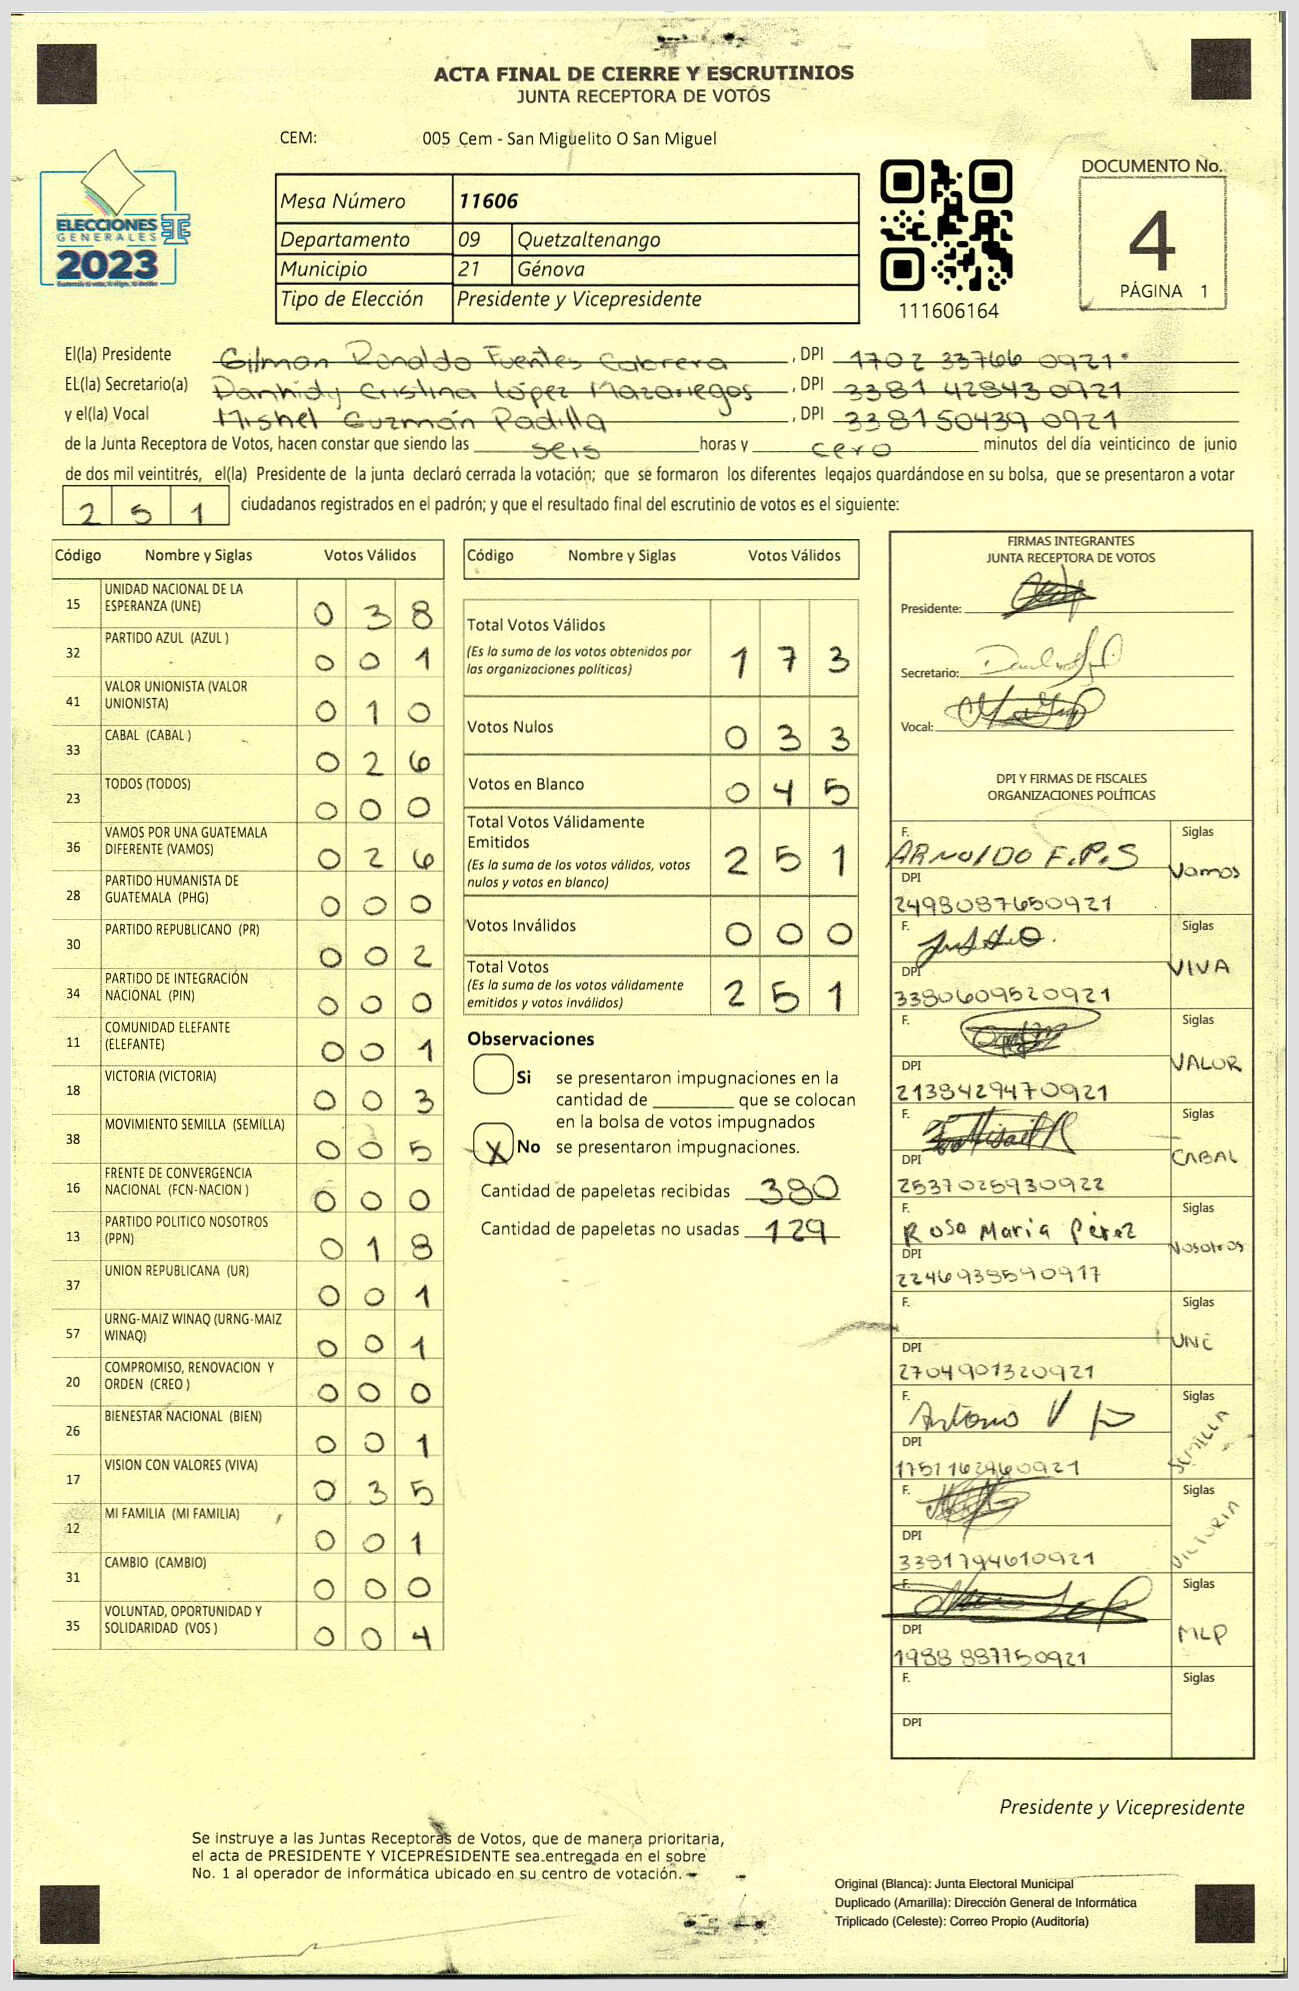 ACTA FINAL DE CIERRE Y ESCRUTINIOS
JUNTA RECEPTORA DE VOTOS
CEM: 005 Cem - San Miguelito O San Miguel
ELECCIONES
GENERALES
2023
Mesa Número 11606
Departamento 09 Quetzaltenango
Municipio 21 Génova
Tipo de Elección Presidente y Vicepresidente
111606164
DOCUMENTO No.
4
PÁGINA 1
El(la) Presidente Gilman Ronaldo Fuentes Cabrera, DPI 1702 33766 0921
EL(la) Secretario(a) Danhidy Cristina López Mazariegos, DPI 3381 42843 0921
y el(la) Vocal Mishel Guzmán Padilla, DPI 3381 50439 0921
de la Junta Receptora de Votos, hacen constar que siendo las seis horas y cero minutos del día veinticinco de junio
de dos mil veintitrés, el(la) Presidente de la junta declaró cerrada la votación; que se formaron los diferentes legajos guardándose en su bolsa, que se presentaron a votar
251 ciudadanos registrados en el padrón; y que el resultado final del escrutinio de votos es el siguiente:
Código Nombre y Siglas Votos Válidos
15 UNIDAD NACIONAL DE LA ESPERANZA (UNE) 0 3 8
32 PARTIDO AZUL (AZUL ) 0 0 1
41 VALOR UNIONISTA (VALOR UNIONISTA) 0 1 0
33 CABAL (CABAL ) 0 2 6
23 TODOS (TODOS) 0 0 0
36 VAMOS POR UNA GUATEMALA DIFERENTE (VAMOS) 0 2 6
28 PARTIDO HUMANISTA DE GUATEMALA (PHG) 0 0 0
30 PARTIDO REPUBLICANO (PR) 0 0 2
34 PARTIDO DE INTEGRACIÓN NACIONAL (PIN) 0 0 0
11 COMUNIDAD ELEFANTE (ELEFANTE) 0 0 1
18 VICTORIA (VICTORIA) 0 0 3
38 MOVIMIENTO SEMILLA (SEMILLA) 0 0 5
16 FRENTE DE CONVERGENCIA NACIONAL (FCN-NACION ) 0 0 0
13 PARTIDO POLITICO NOSOTROS (PPN) 0 1 8
37 UNION REPUBLICANA (UR) 0 0 1
57 URNG-MAIZ WINAQ (URNG-MAIZ WINAQ) 0 0 1
20 COMPROMISO, RENOVACION Y ORDEN (CREO ) 0 0 0
26 BIENESTAR NACIONAL (BIEN) 0 0 1
17 VISION CON VALORES (VIVA) 0 3 5
12 MI FAMILIA (MI FAMILIA) 0 0 1
31 CAMBIO (CAMBIO) 0 0 0
35 VOLUNTAD, OPORTUNIDAD Y SOLIDARIDAD (VOS ) 0 0 4
Código Nombre y Siglas Votos Válidos
Total Votos Válidos 1 7 3
(Es la suma de los votos obtenidos por
las organizaciones políticas)
Votos Nulos 0 3 3
Votos en Blanco 0 4 5
Total Votos Válidamente
Emitidos 2 5 1
(Es la suma de los votos válidos, votos
nulos y votos en blanco)
Votos Inválidos 0 0 0
Total Votos 2 5 1
(Es la suma de los votos válidamente
emitidos y votos inválidos)
Observaciones
Si se presentaron impugnaciones en la
cantidad de ________ que se colocan
en la bolsa de votos impugnados
X No se presentaron impugnaciones.
Cantidad de papeletas recibidas 380
Cantidad de papeletas no usadas 129
FIRMAS INTEGRANTES
JUNTA RECEPTORA DE VOTOS
Presidente:
Secretario:
Vocal:
DPI Y FIRMAS DE FISCALES
ORGANIZACIONES POLÍTICAS
F. ARNOLDO F.P.S Siglas Vamos
DPI
2498087650921
F. Siglas VIVA
DPI
3380609520921
F. Siglas VALOR
DPI
2138429470921
F. Siglas CABAL
DPI
2537025930922
F. Rosa María Pérez Siglas Nosotros
DPI
2246938590917
F. Siglas UNE
DPI
2704901320921
F. Antonio V Siglas SEMILLA
DPI
1751162960921
F. Siglas VICTORIA
DPI
3381794610921
F. Siglas MLP
DPI
1988 887750921
F. Siglas
DPI
Presidente y Vicepresidente
Se instruye a las Juntas Receptoras de Votos, que de manera prioritaria,
el acta de PRESIDENTE Y VICEPRESIDENTE sea entregada en el sobre
No. 1 al operador de informática ubicado en su centro de votación.
Original (Blanca): Junta Electoral Municipal
Duplicado (Amarilla): Dirección General de Informática
Triplicado (Celeste): Correo Propio (Auditoría)